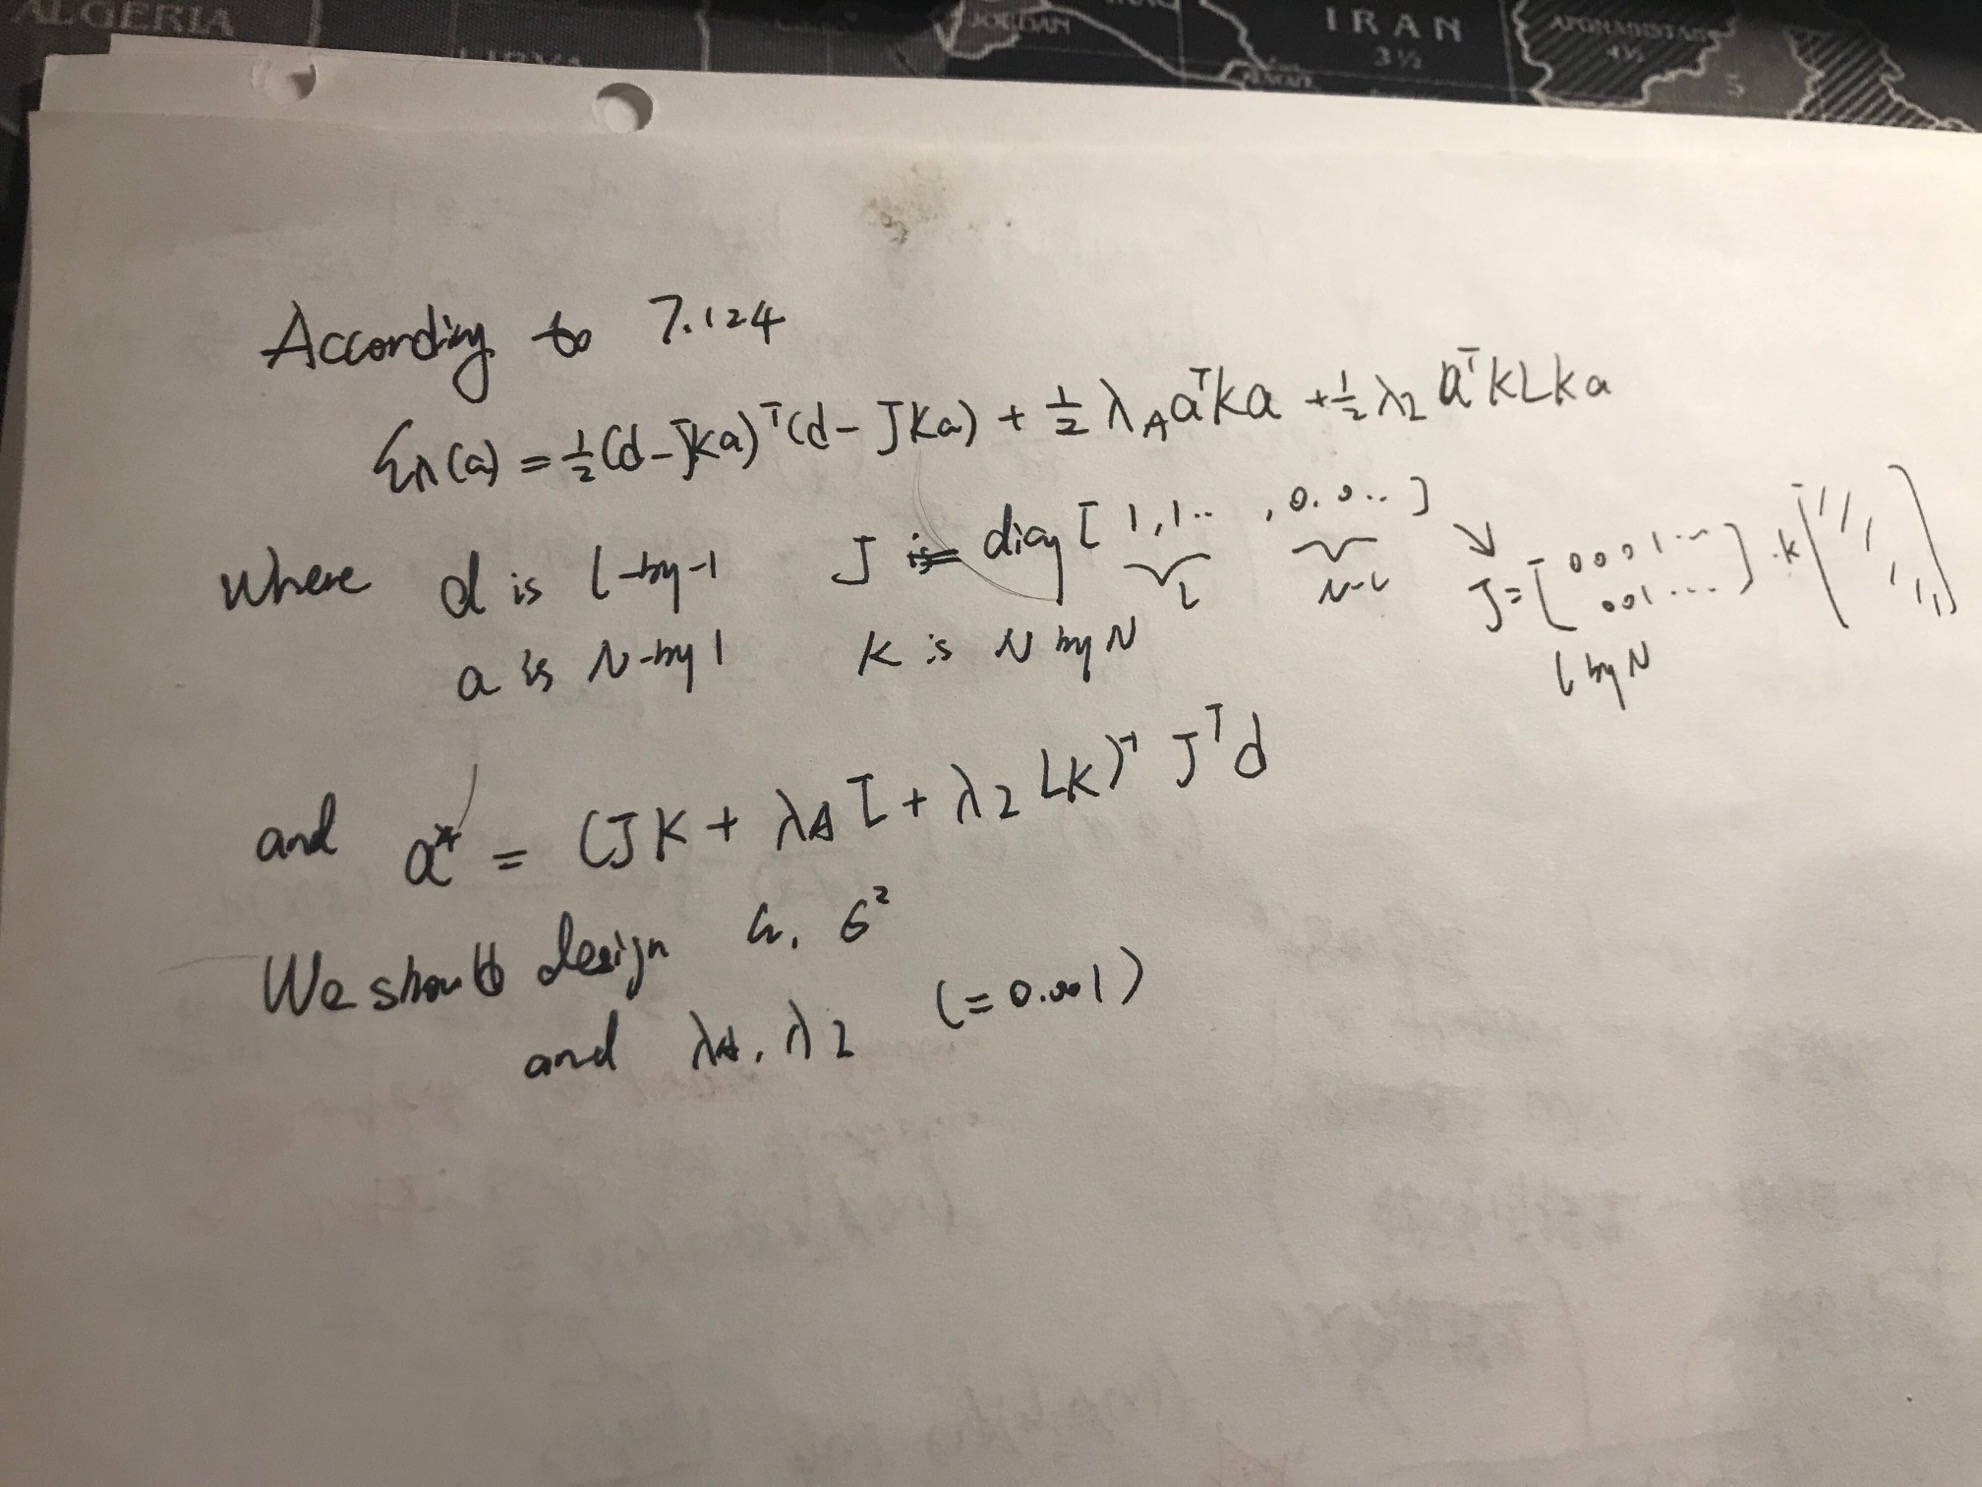 ALGERIA
JORDAN
IRAN
3 ½
AFGHANISTAN
4½
5
According to 7.124
Eλ(a) = ½(d-JKa)ᵀ(d-JKa) + ½ λ_A aᵀKa + ½ λ₂ aᵀKLKa
where d is l-by-1 J is = diag [1,1.. , 0.0..] ↘
l N-l J = [0001.. 001...] . K
a is N-by 1 K is N by N l by N
and a* = (JK + λ_A I + λ₂ LK)⁻¹ Jᵀd
We should design σ²
and λ_A, λ₂ (=0.001)